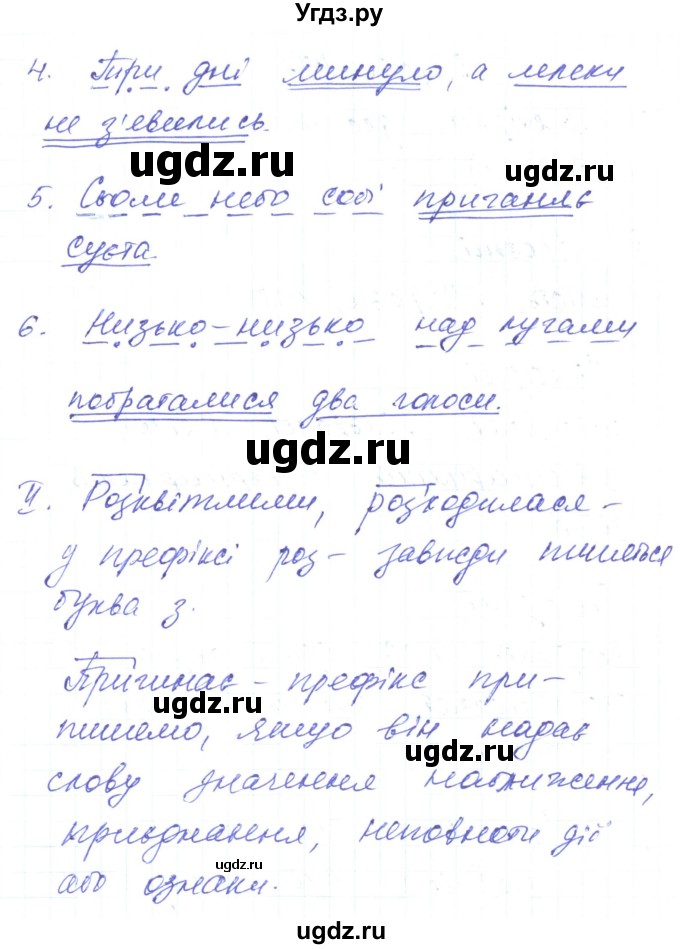 Угдз.ру
4. Три дні минуло, а лелеки
не з'явились.
ugdz.ru
5. Сьоме небо собі пригина
суєта.
ugdz.ru
6. Низько-низько над лугами
побраталися два голоси.
ugdz.ru
ІІ. Розквітлими, розходилася –
у префіксі роз- завжди пишеться
ugdz.ru
буква з.
Пригинає – префікс при-
ugdz.ru
пишемо, якщо він надає
ugdz.ru
слову значення наближення,
приєднання, неповноти дії
ugdz.ru
або ознаки.
ugdz.ru